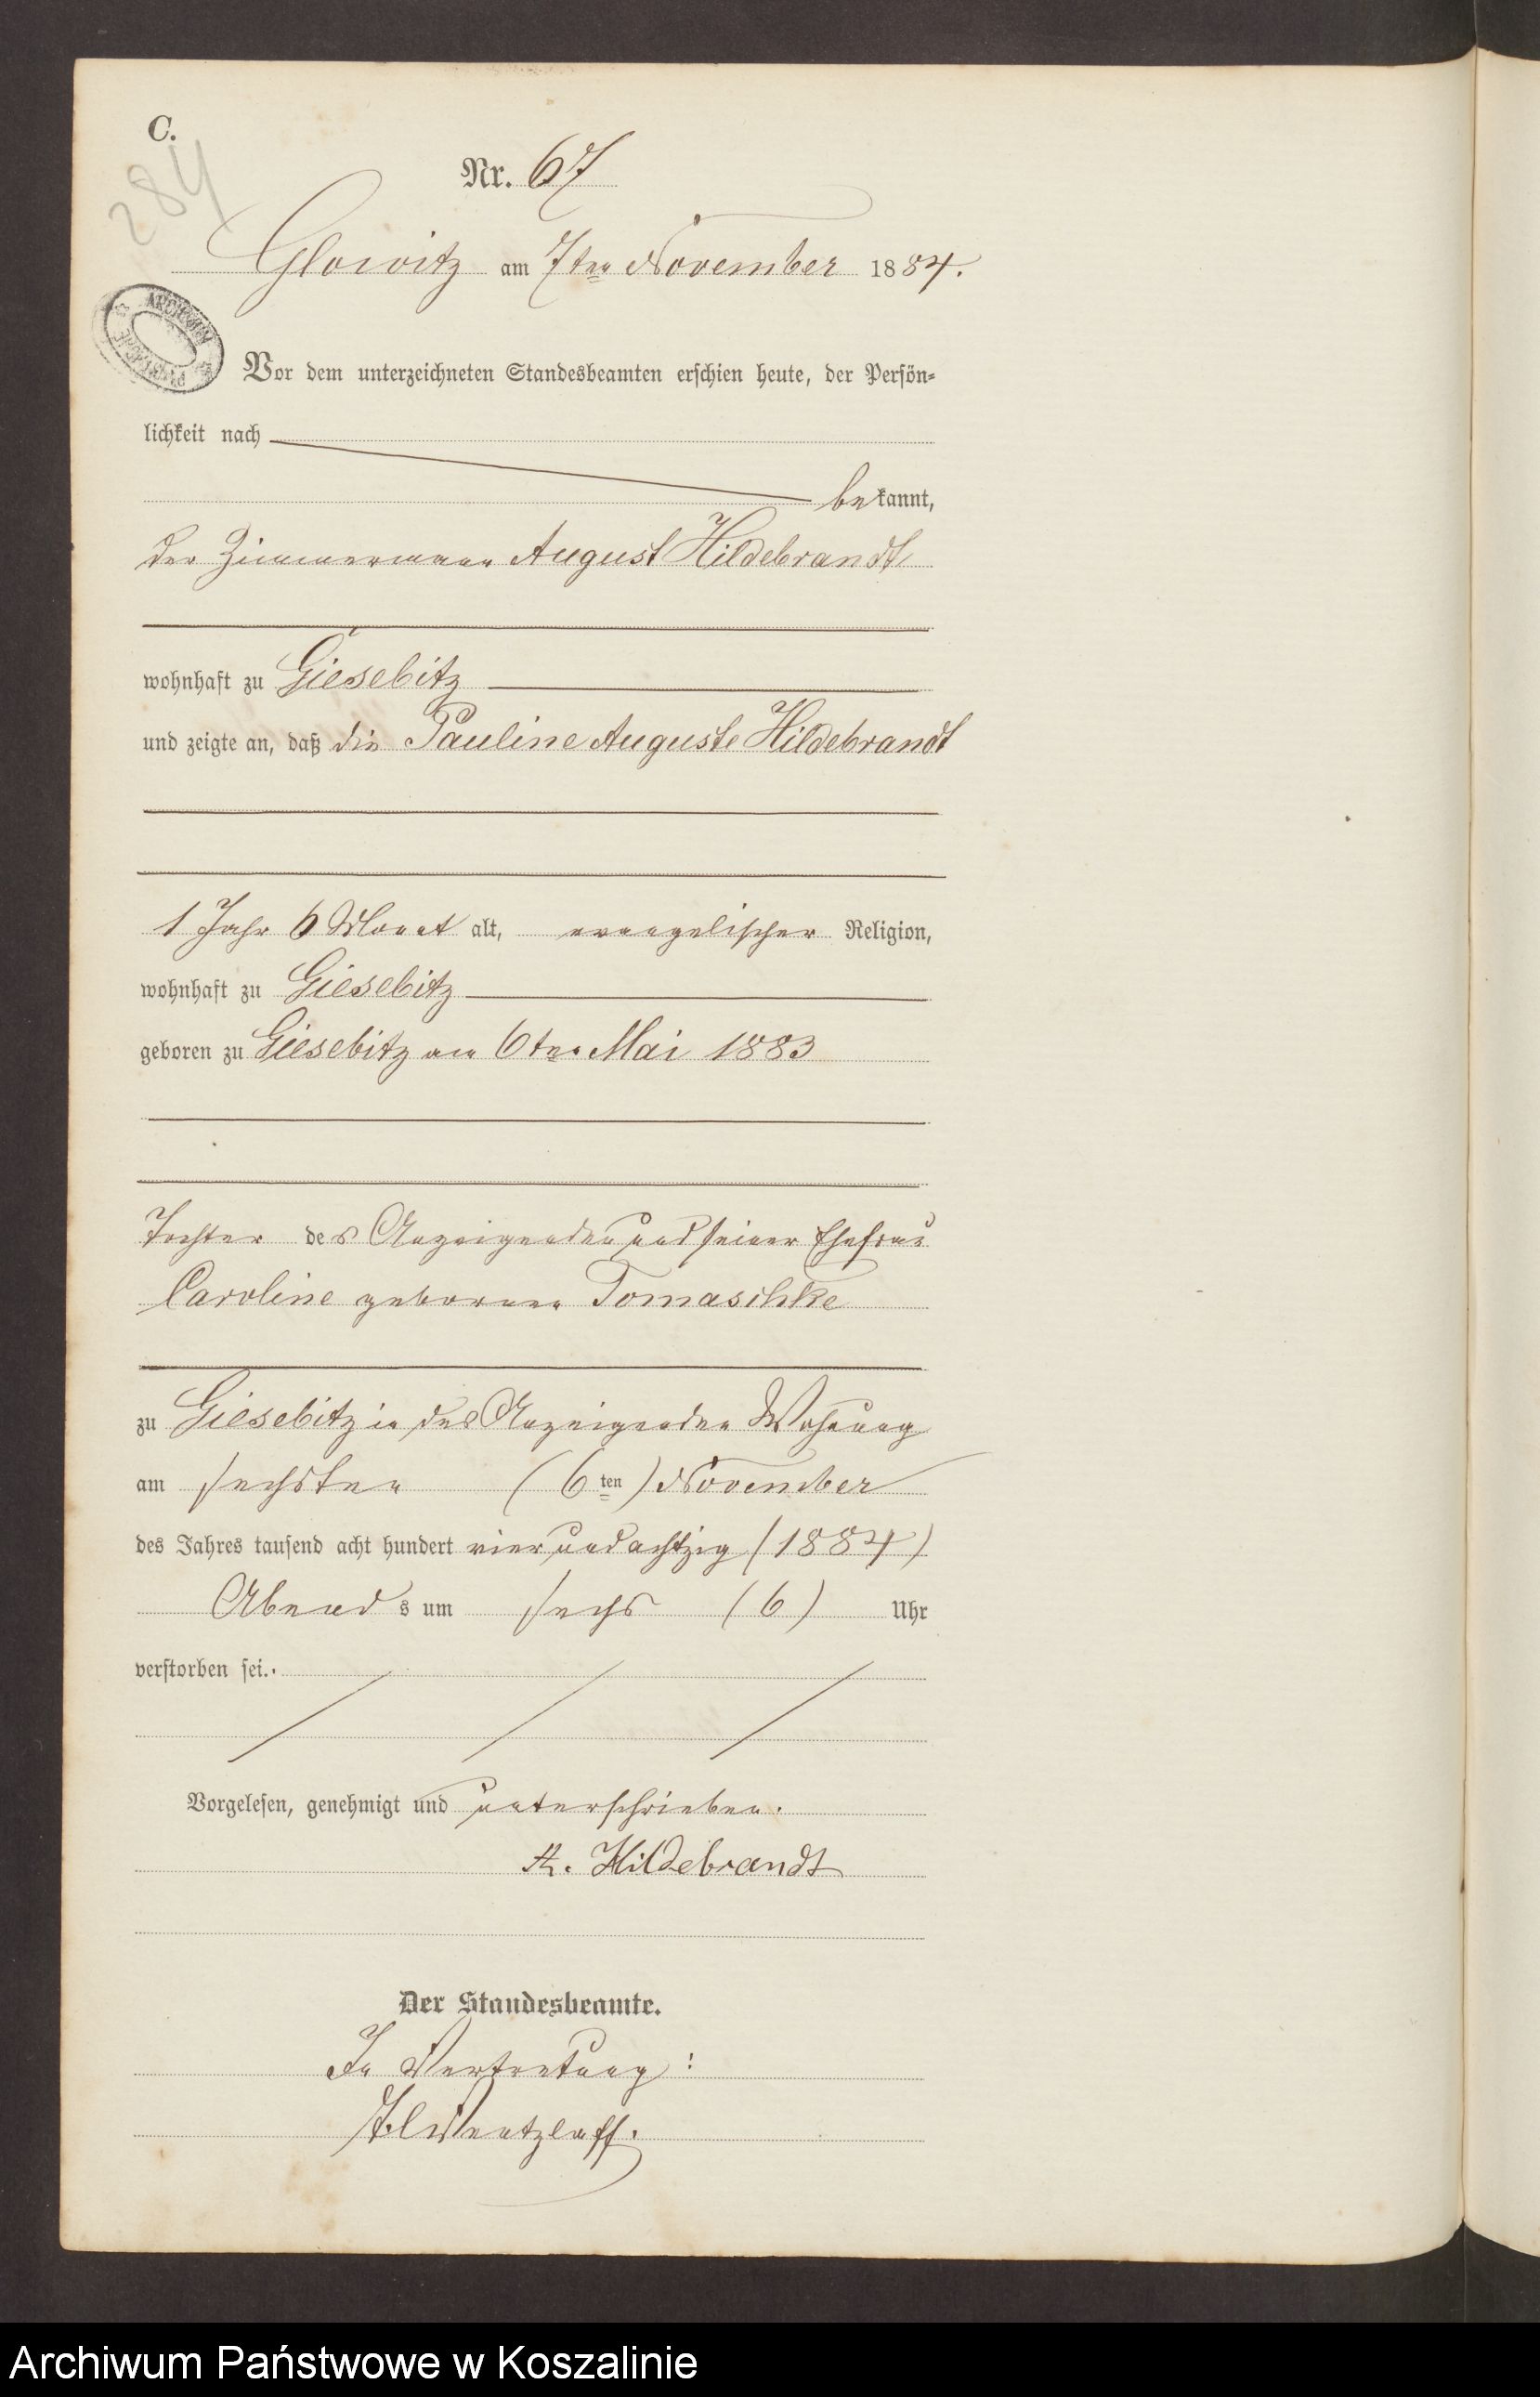 C.
284
Nr. 67
Glowitz am 7ten November 1884.
Vor dem unterzeichneten Standesbeamten erschien heute, der Persön-
lichkeit nach
bekannt,
der Zimmermann August Hildebrandt
wohnhaft zu Giesebitz
und zeigte an, daß die Pauline Auguste Hildebrandt
1 Jahr 6 Monat alt, evangelischer Religion,
wohnhaft zu Giesebitz
geboren zu Giesebitz am 6ten Mai 1883
Tochter des Anzeigenden und seiner Ehefrau
Caroline geborenen Tomaschke
zu Giesebitz in des Anzeigenden Wohnung
am sechsten (6ten) November
des Jahres tausend acht hundert vier und achtzig (1884)
Abends um sechs (6) Uhr
verstorben sei.
Vorgelesen, genehmigt und unterschrieben.
A. Hildebrandt
Der Standesbeamte.
In Vertretung:
Wentzlaff.
Archiwum Państwowe w Koszalinie